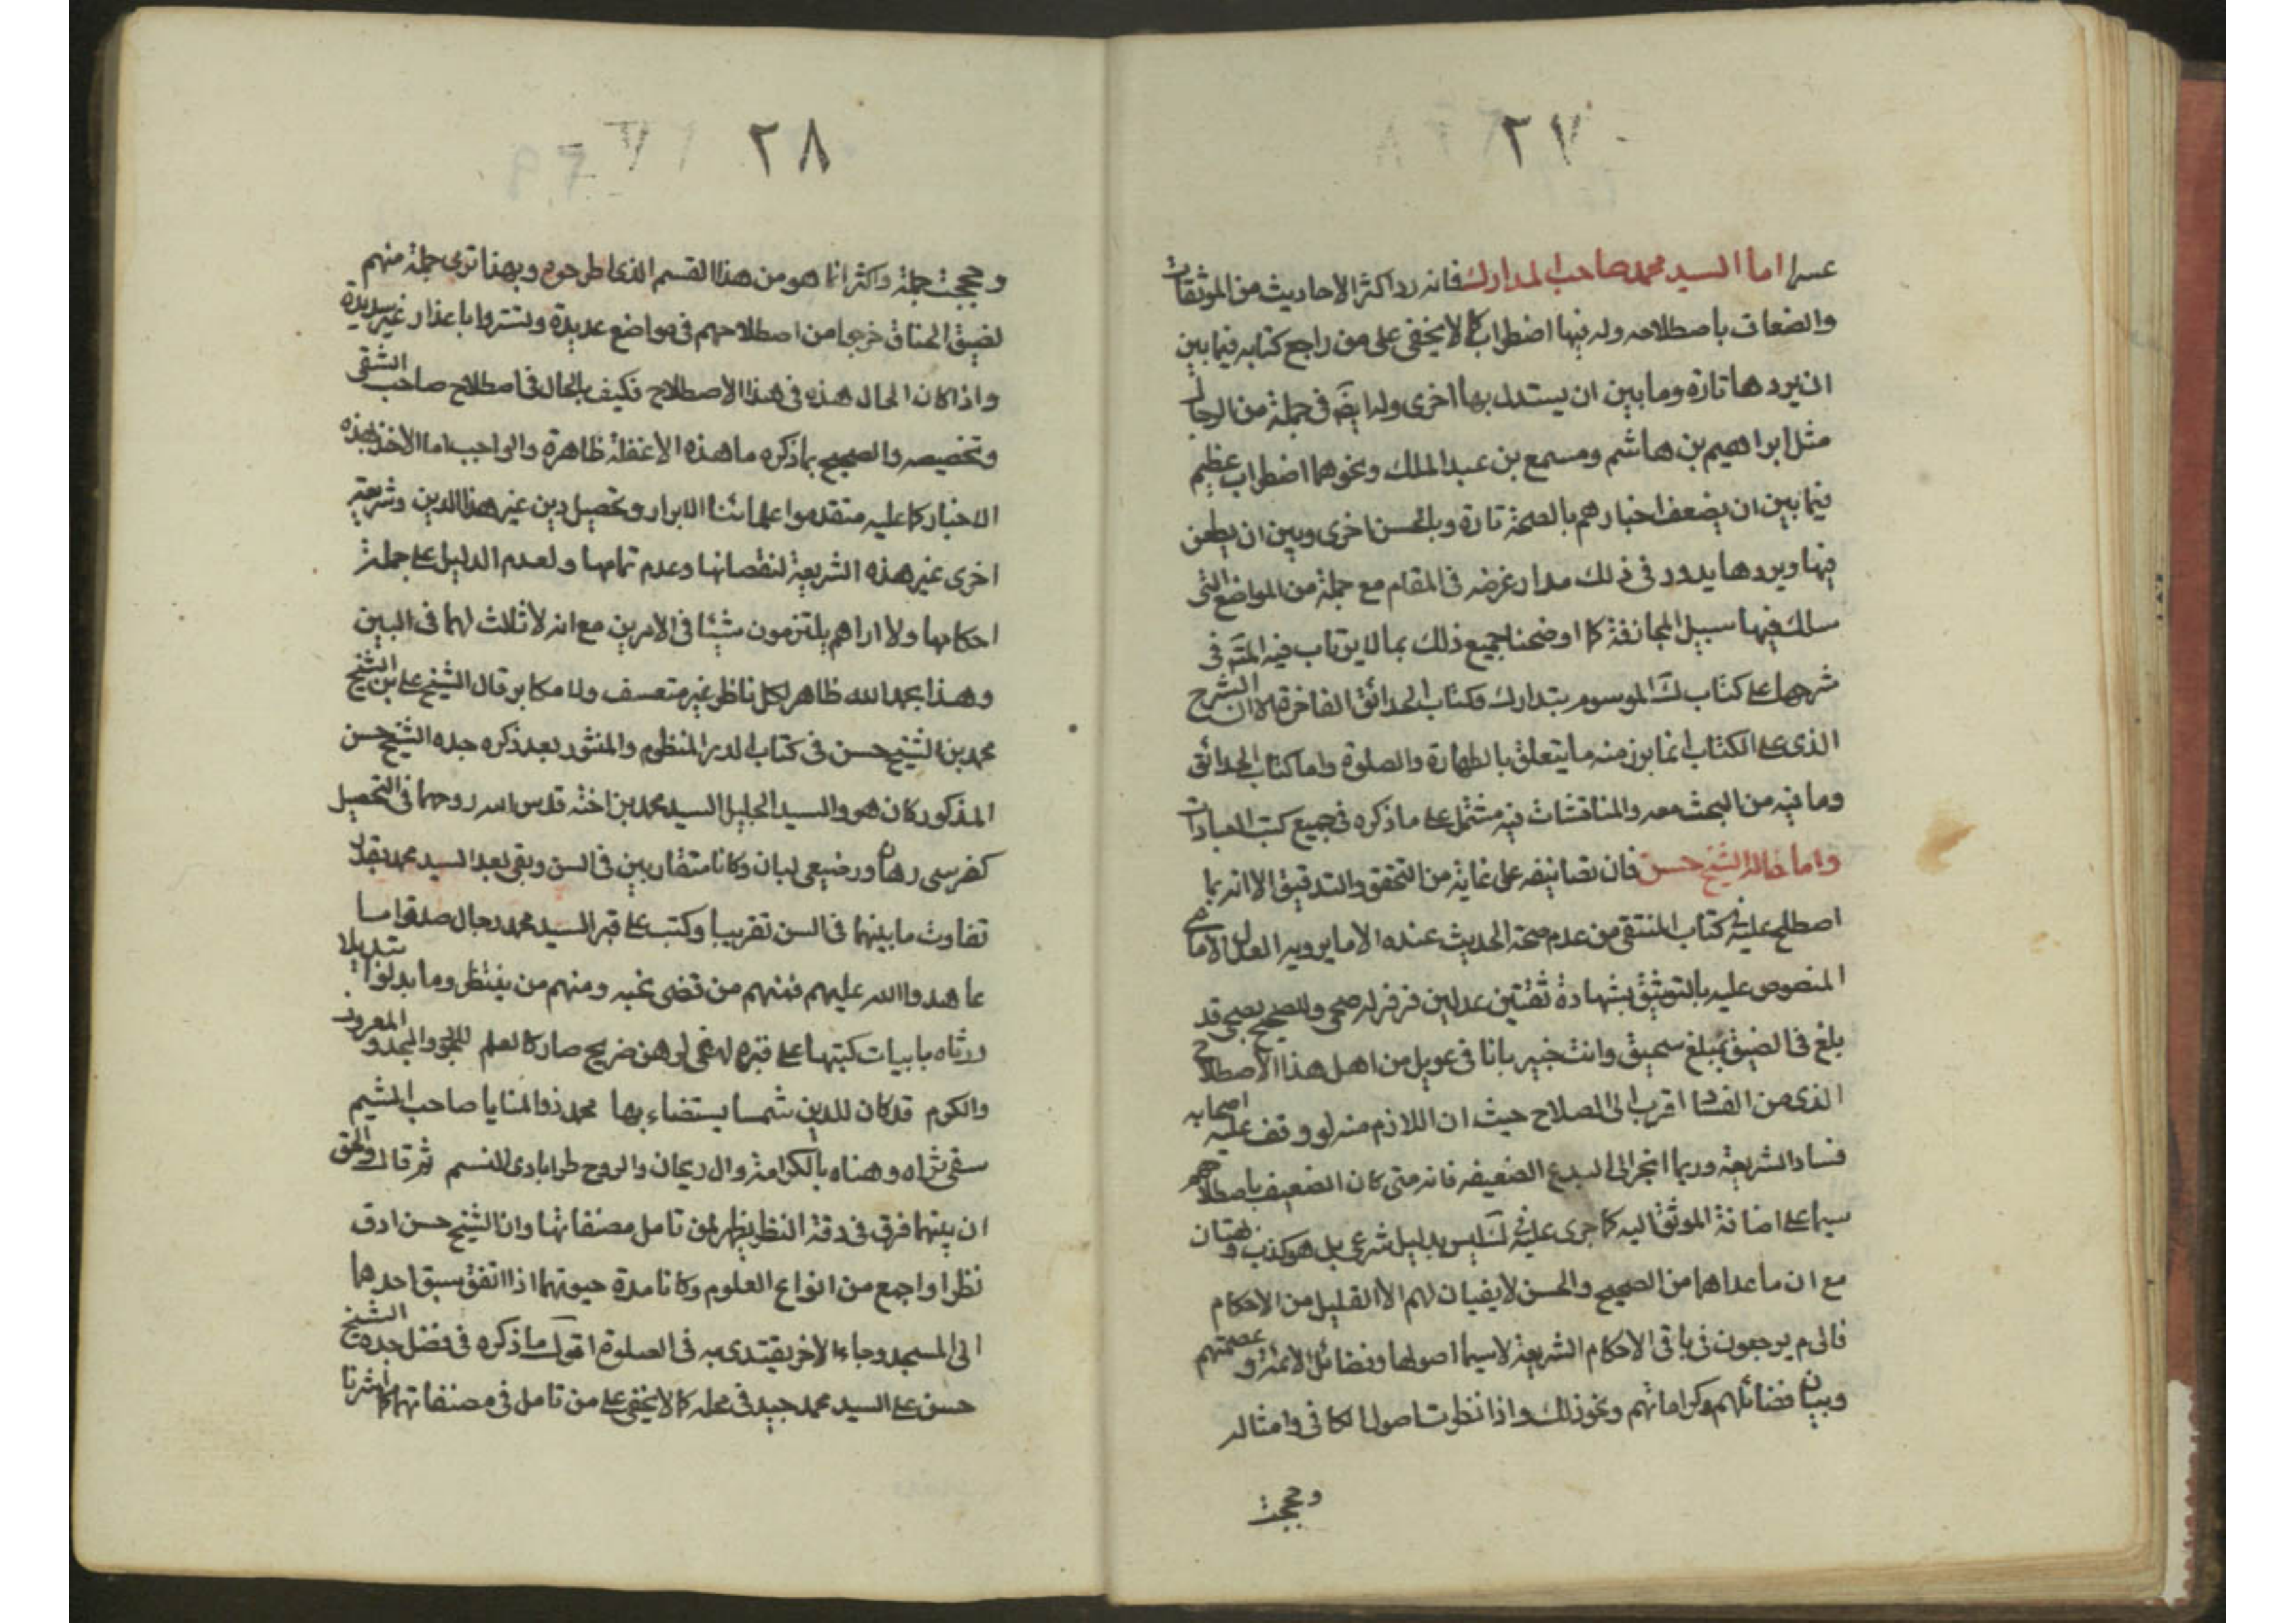 ٢٧
عسرا اما السيد محمد صاحب المدارك فانه رد اكثر الاحاديث من الموثقات
والضعاف باصطلاحه وله فيها اضطراب كما لا يخفى على من راجع كتابه فيما بين
ان يردها تارة وما بين ان يستدل بها اخرى وله ايضا في جملة من الرجال
مثل ابراهيم بن هاشم ومسمع بن عبد الملك ونحوهما اضطراب عظيم
فيما بين ان يضعف اخبارهم بالصحة تارة وبالحسن اخرى وبين ان يطعن
فيها ويردها يدور في ذلك مدار غرضه في المقام مع جملة من المواضع التي
سلك فيها سبيل المجازفة كما اوضحنا جميع ذلك بما لا يرتاب فيه المتـ في
شرحها على كتاب ك الموسوم بتدارك وكتاب الحدائق الفاخرة الا ان الشرح
الذي على الكتاب انما برز منه ما يتعلق بالطهارة والصلوة واما كتاب الحدائق
وما فيه من البحث معه والمناقشات فيه مشتمل على ما ذكره في جميع كتب العبادات
واما خاله الشيخ حسن فان تصانيفه على غاية من التحقق والتدقيق الا انه بما
اصطلح عليه في كتاب المنتقى من عدم صحة الحديث عنده الا ما يرويه العدل الامامي
المنصوص عليه بالتوثيق بشهادة ثقتين عدلين فرفرله صحي وللصحيح بصحي قد
بلغ في الضيق مبلغ سحيق وانت خبير بانا في عويل من اهل هذا الاصطلاح
الذي من الفساد اقرب الى الصلاح حيث ان اللازم منه لو وقف عليه اصحابه
فساد الشريعة وربما انجر الى البدع الضعيفه فانه متى كان الضعيف باصطلاحهم
سيما على اضافة الموثق اليه كما جرى عليه في ك ليس بدليل شرعي بل هو كذب وبهتان
مع ان ما عداهما من الصحيح والحسن لا يفيان لهم الا القليل من الاحكام
فالى م يرجعون في باقي الاحكام الشريعة لاسيما اصولها وفضائل الائمة وعصمتهم
وبيان فضائلهم وكراماتهم ونحو ذلك واذا نظرت اصول الكافي وامثاله
وججت
٢٨
وججت جملة واكثر انما هو من هذا القسم الذي اطرحوه وبهذا ترى جملة منهم
لضيق الخناق خرجوا من اصطلاحهم في مواضع عديدة وتستروا باعذار غير سديدة
واذا كان الحال هذه في هذا الاصطلاح فكيف بالحال في اصطلاح صاحب المنتقى
وتخصيصه والصحيح بما ذكره ما هذه الا غفلة ظاهرة والواجب اما الاخذ بهذه
الاخبار كما عليه متقدموا علمائنا الابرار وتحصيل دين غير هذا الدين وشريعة
اخرى غير هذه الشريعة لنقصانها وعدم تمامها ولعدم الدليل على جملة
احكامها ولا اراهم يلتزمون شيئا في الامرين مع انه لا ثلاث لهما في البين
وهذا بحمد الله ظاهر لكل ناظر غير متعسف ولا مكابر قال الشيخ على بن الشيخ
محمد بن الشيخ حسن في كتاب الدر المنظوم والمنثور بعد ذكره جده الشيخ حسن
المذكور كان هو والسيد الجليل السيد محمد بن اخته قدس الله روحهما في التحصيل
كفرسي رهان ورضيعي لبان وكانا متقاربين في السن وبقي بعد السيد محمد بقدر
تفاوت ما بينهما في السن تقريبا وكتب على قبر السيد محمد رجال صدقوا ما
عاهدوا الله عليهم فمنهم من قضى نحبه ومنهم من ينتظر وما بدلوا تبديلا
ورثاه بابيات كتبها على قبره لهفي لرهن ضريح صار كالعلم للجود والمجد والمعروف
والكرم قد كان للدين شمسا يستضاء بها محمد ذو المنايا صاحب الشيم
سقى ثراه وهناه بالكرامة وال ريحان والروح طرا بادي للنسم ثم قال والحق
ان بينهما فرق في دقة النظر يظهر لمن تامل مصنفاتها وان الشيخ حسن ادق
نظرا واجمع من انواع العلوم وكانا مدة حيوتهما اذا اتفق سبق احدهما
الى المسجد وجاء الاخر يقتدى به في الصلوة اقول ما ذكره في فضل جده الشيخ
حسن على السيد محمد جيد في محله كما لا يخفى على من تامل في مصنفاتهما كما اشرنا